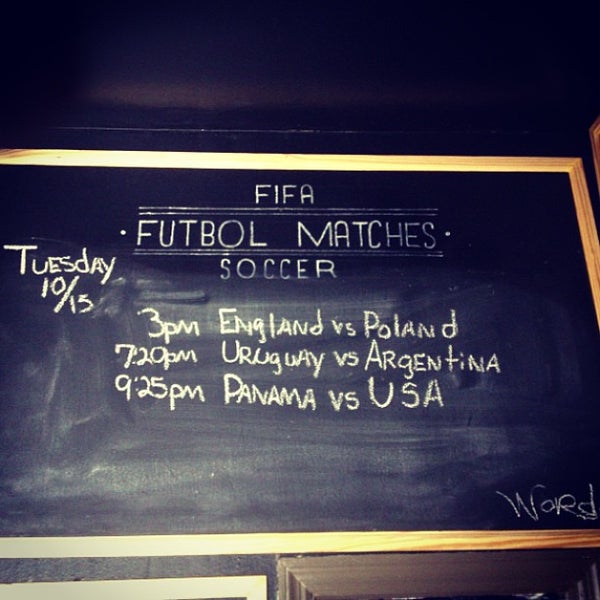 FIFA
· FUTBOL MATCHES ·
SOCCER
TUESDAY
10/15
3pm ENGlANd vs PolANd
7:20pm URUGUAY vs ARGENtiNA
9:25pm PANAMA vs USA
Word